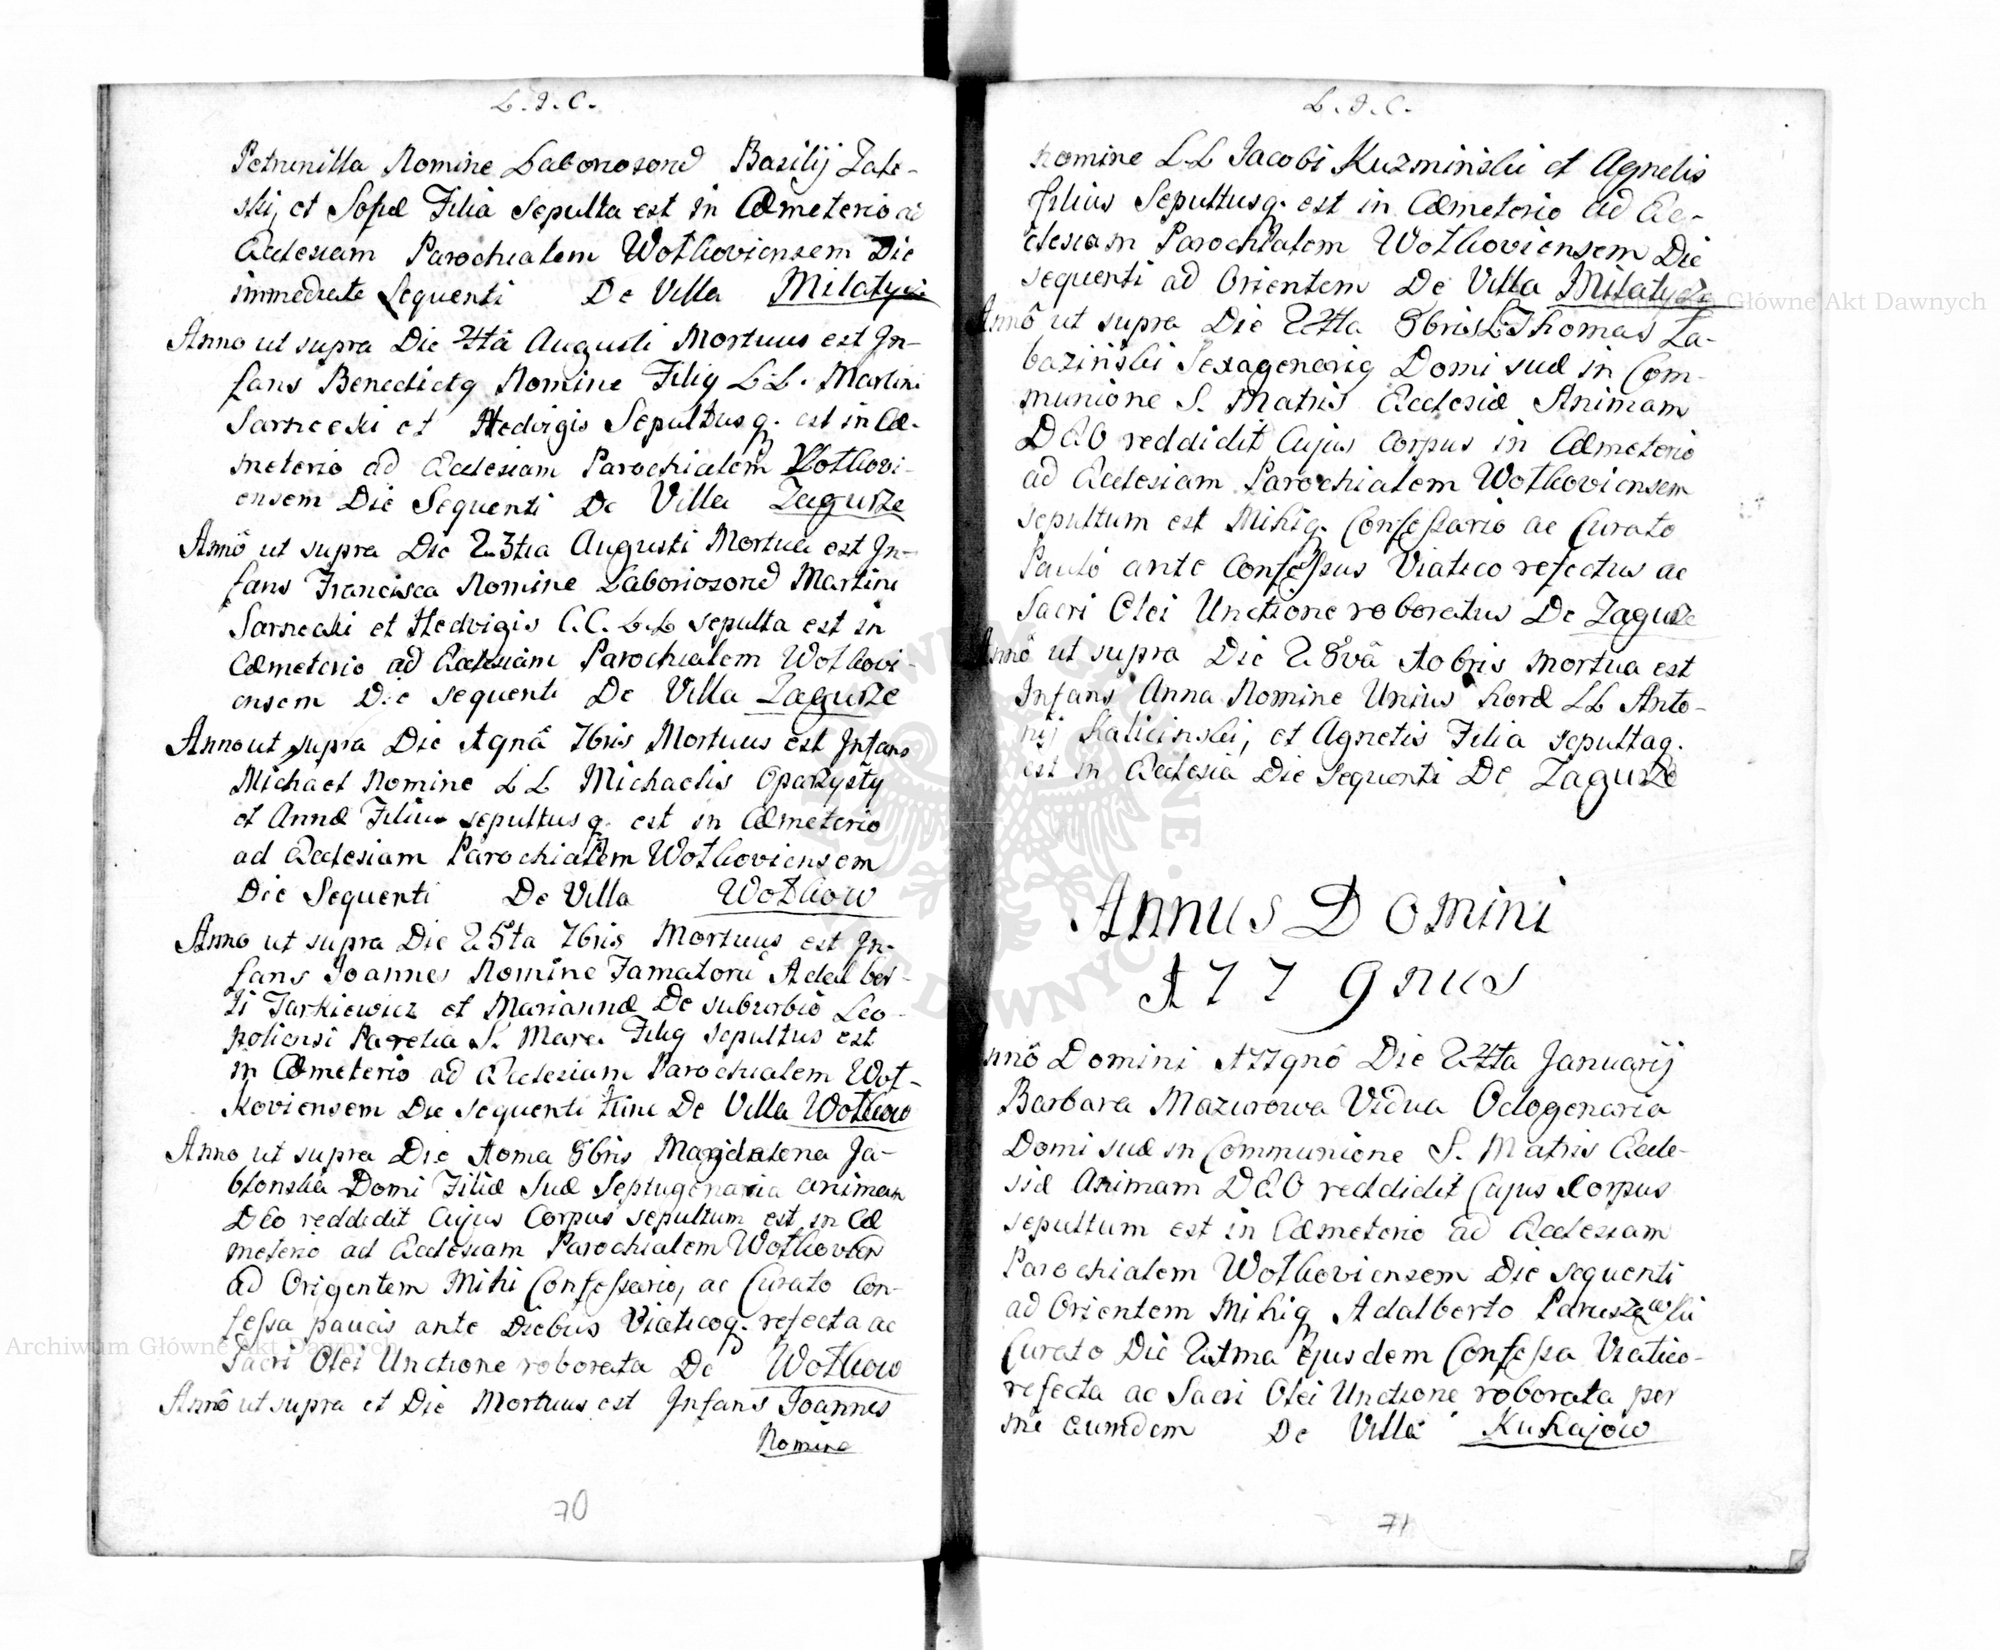 L. J. C.
Petrunilla Nomine Laboriosorũ Basilij Zale-
ski, et Sofiæ Filia Sepulta est in Cœmeterio ad
Ecclesiam Parochialem Wołkoviensem Die
immediate Sequenti De Villa Milatycze
Anno ut supra Die 4tâ Augusti Mortuus est In-
fans Benedictq Nomine Filiq L.L. Martini
Sarnecki et Hedvigis Sepultusq. est in Cœ-
meterio ad Ecclesiam Parochialem Wołkovi-
ensem Die Sequenti De Villa Zagurze
Annô ut supra Die 23tia Augusti Mortua est In-
fans Francisca Nomine Laboriosorũ Martini
Sarnecki et Hedvigis C.C. L.L sepulta est in
Cœmeterio ad Ecclesiam Parochialem Wołkovi-
ensem Die sequenti De Villa Zagurze
Anno ut supra Die 19nâ 7bris Mortuus est Infans
Michael Nomine L L Michaelis Oparzysty
et Annæ Filius sepultusq. est in Cœmeterio
ad Ecclesiam Parochialem Wołkoviensem
Die Sequenti De Villa Wołkow
Anno ut supra Die 25ta 7bris Mortuus est In-
fans Joannes Nomine Famatorũ Adalber-
ti Tarkiewicz et Mariannæ De suburbio Leo-
poliensi Parochia S. Mare. Filiq sepultus est
in Cœmeterio ad Ecclesiam Parochialem Woł-
koviensem Die sequenti De Villa Wołkow
Anno ut supra Die 10ma 8bris Magdalena Ja-
błonska Domi Filiæ Suæ Septugenaria animam
DEO reddidit Cujus Corpus sepultum est in Cœ
meterio ad Ecclesiam Parochialem Wołkovien
ad Origentem Mihi Confessario, ac Curato Con-
fessa paucis ante Diebus Viaticoq. refecta ac
Sacri Olei Unctione roborata De Wołkow
Annô ut supra et Die Mortuus est Infans Joannes
Nomine
70
L. J. C.
nomine L.L Jacobi Kuzminski et Agnetis
filius Sepultusq. est in Cœmeterio ad Ec-
clesiam Parochialem Wołkoviensem Die
sequenti ad Orientem De Villa Milatycze
Annô ut supra Die 24ta 8bris L Thomas Ła-
bazinski Sexagenariq Domi suæ in Com-
munione S. Matris Ecclesiæ Animam
DEO reddidit Cujus Corpus in Cœmeterio
ad Ecclesiam Parochialem Wołkoviensem
sepultum est Mihiq. Confessario ac Curato
Paulò ante Confessus Viatico refectus ac
Sacri Olei Unctione roboratus De Zagurze
Annô ut supra Die 28vâ 10bris Mortua est
Infans Anna Nomine Unius horæ LL Anto-
nij Kalicinski, et Agnetis Filia sepultaq.
est in Ecclesia Die Sequenti De Zagurze
Annus Domini
1779nus
Annô Domini 1779nô Die 24ta Januarij
Barbara Mazurowa Vidua Octogenaria
Domi suæ in Communione S. Matris Eccle-
siæ Animam DEO reddidit Cujus Corpus
sepultum est in Cœmeterio ad Ecclesiam
Parochialem Wołkoviensem Die sequenti
ad Orientem Mihiq Adalberto Paruszewski
Curato Die 21ma Ejusdem Confessa Viatico-
refecta ac Sacri Olei Unctione roborata per
me eumdem De Villa Kuhajow
71
Archiwum Główne Akt Dawnych
Archiwum Główne Akt Dawnych
ARCHIWUM GŁÓWNE AKT DAWNYCH